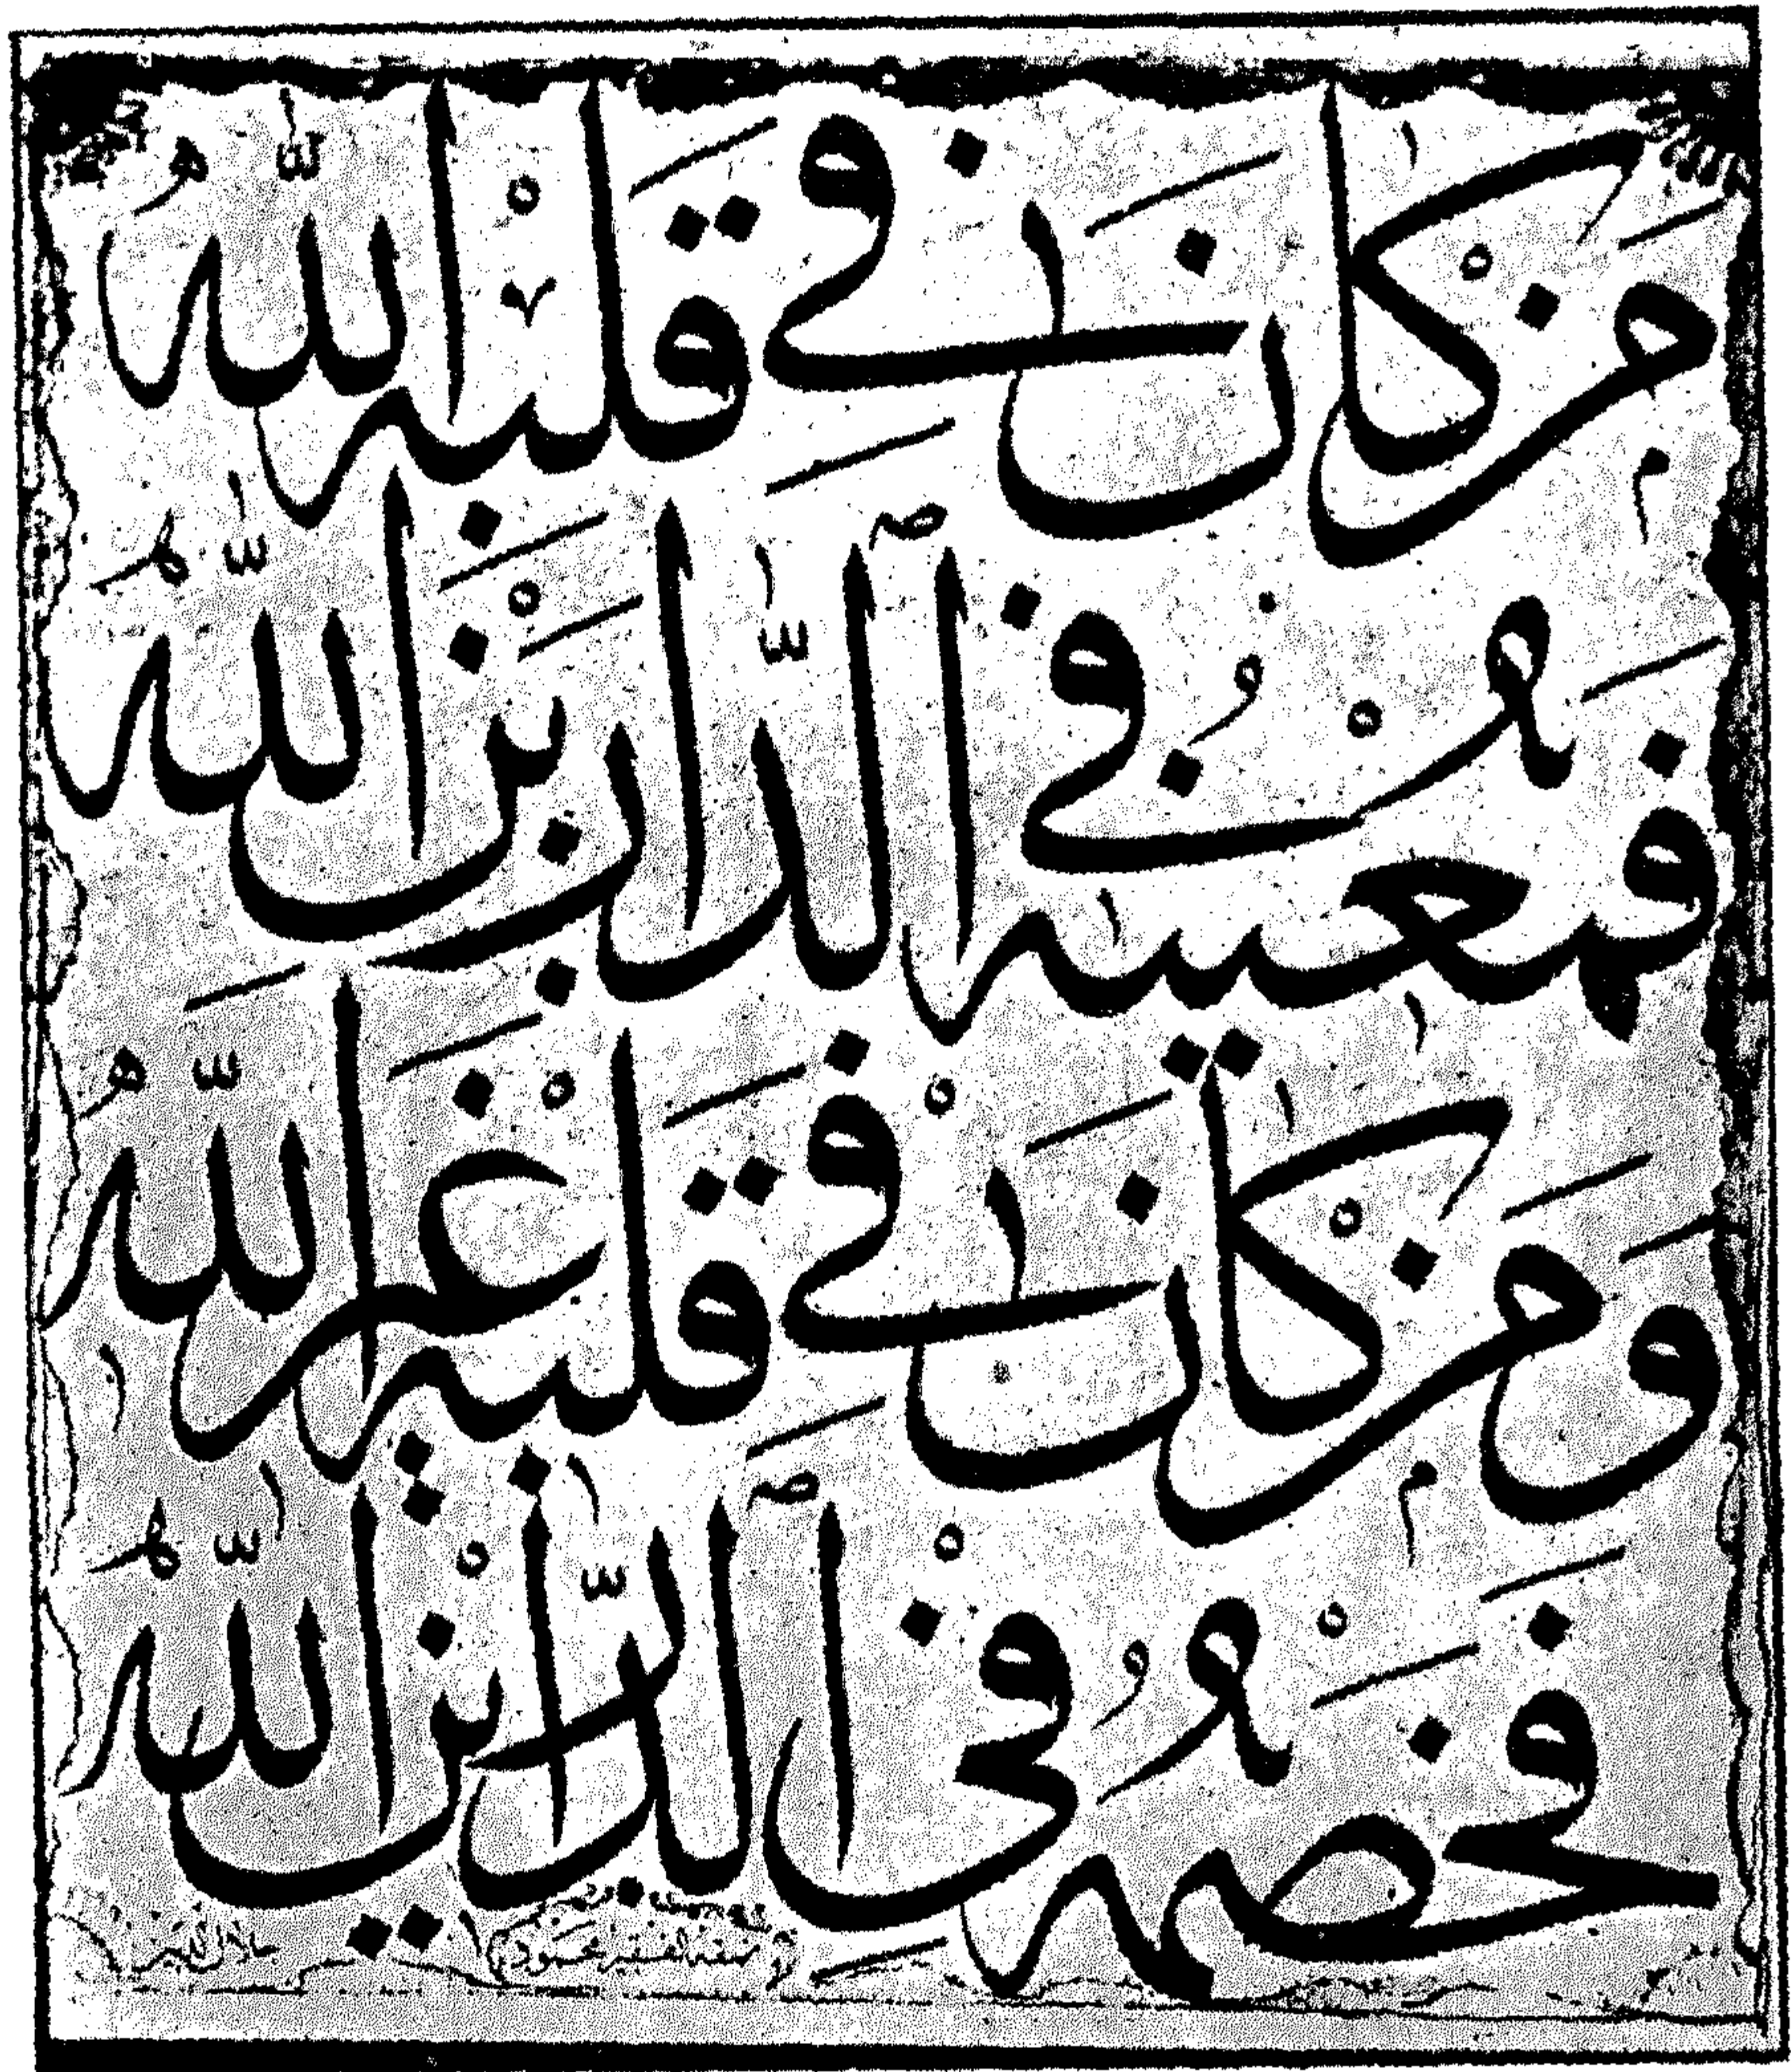 مَنْ كَانَ فِي قَلْبِهِ اللهُ
فَمُعِينُهُ فِي الدَّارَيْنِ اللهُ
وَمَنْ كَانَ فِي قَلْبِهِ غَيْرُ اللهِ
فَخَصْمُهُ فِي الدَّارَيْنِ اللهُ